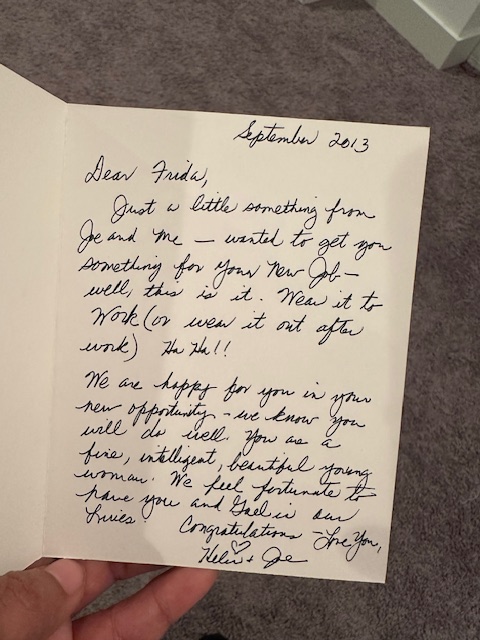 September 2013
Dear Frida,
Just a little something from
Joe and me — wanted to get you
something for your new job —
well, this is it. Wear it to
work (or wear it out after
work) Ha Ha!!
We are happy for you in your
new opportunity - we know you
will do well. You are a
fine, intelligent, beautiful young
woman. We feel fortunate to
have you and Gael in our
lives. Congratulations - Love You,
Helen + Joe